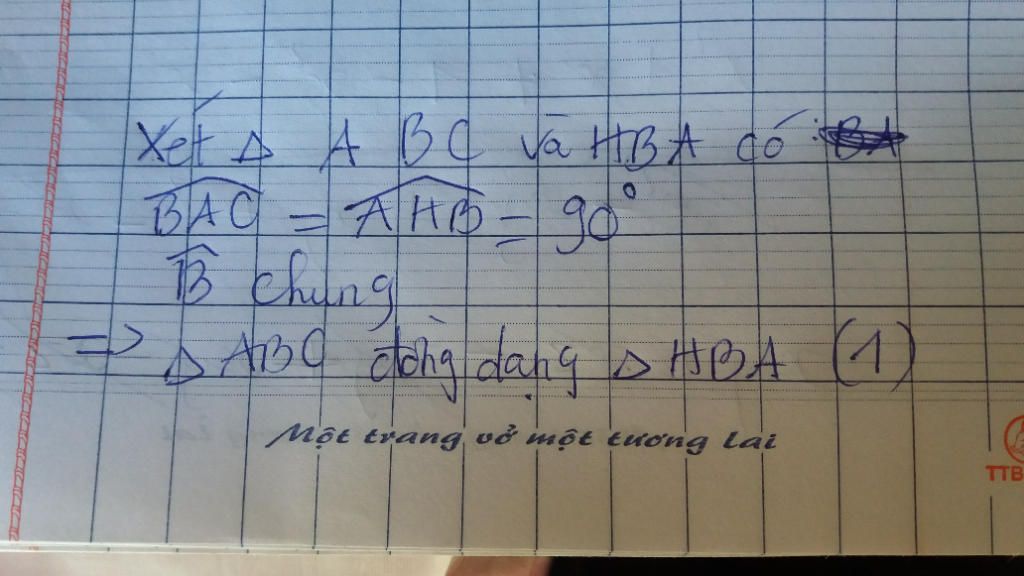 Xét Δ ABC và HBA có:
BAC = AHB = 90°
B̂ chung
=> Δ ABC đồng dạng Δ HBA (1)
Một trang vở một tương lai
TTB